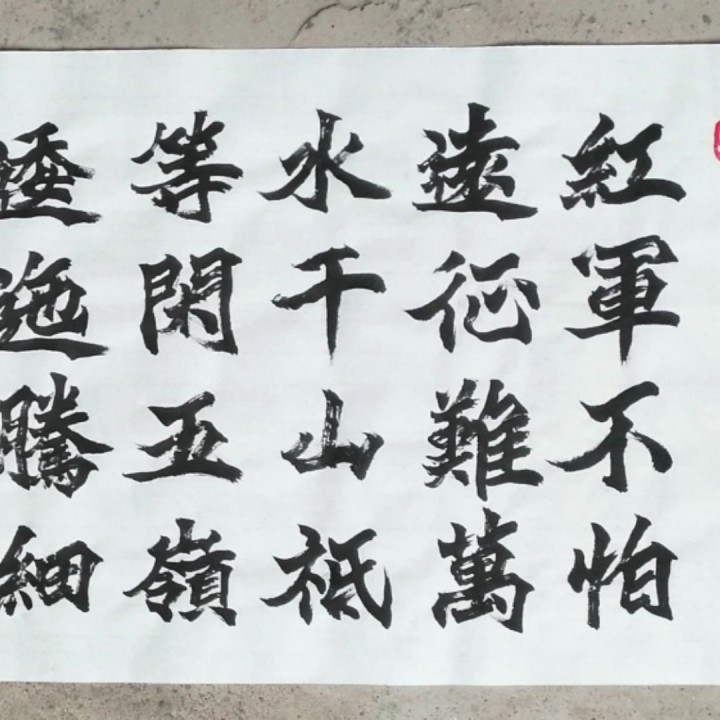 紅軍不怕
遠征難萬
水千山祇
等閑五嶺
逶迤騰細